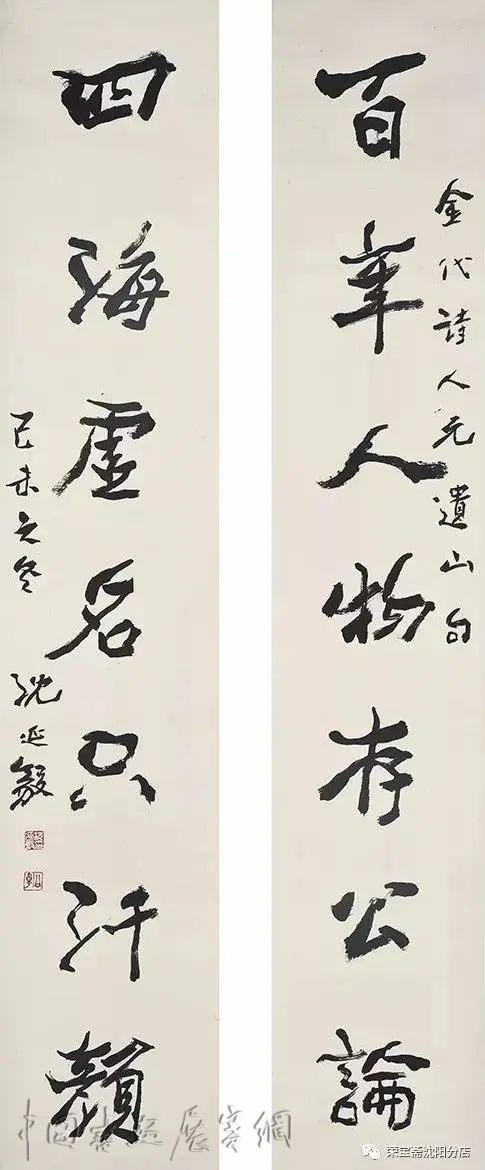 金代詩人元遺山句
百年人物存公論
四海虛名只汗顏
己未之冬 沈延毅
中國書法展賽網
荣宝斋沈阳分店